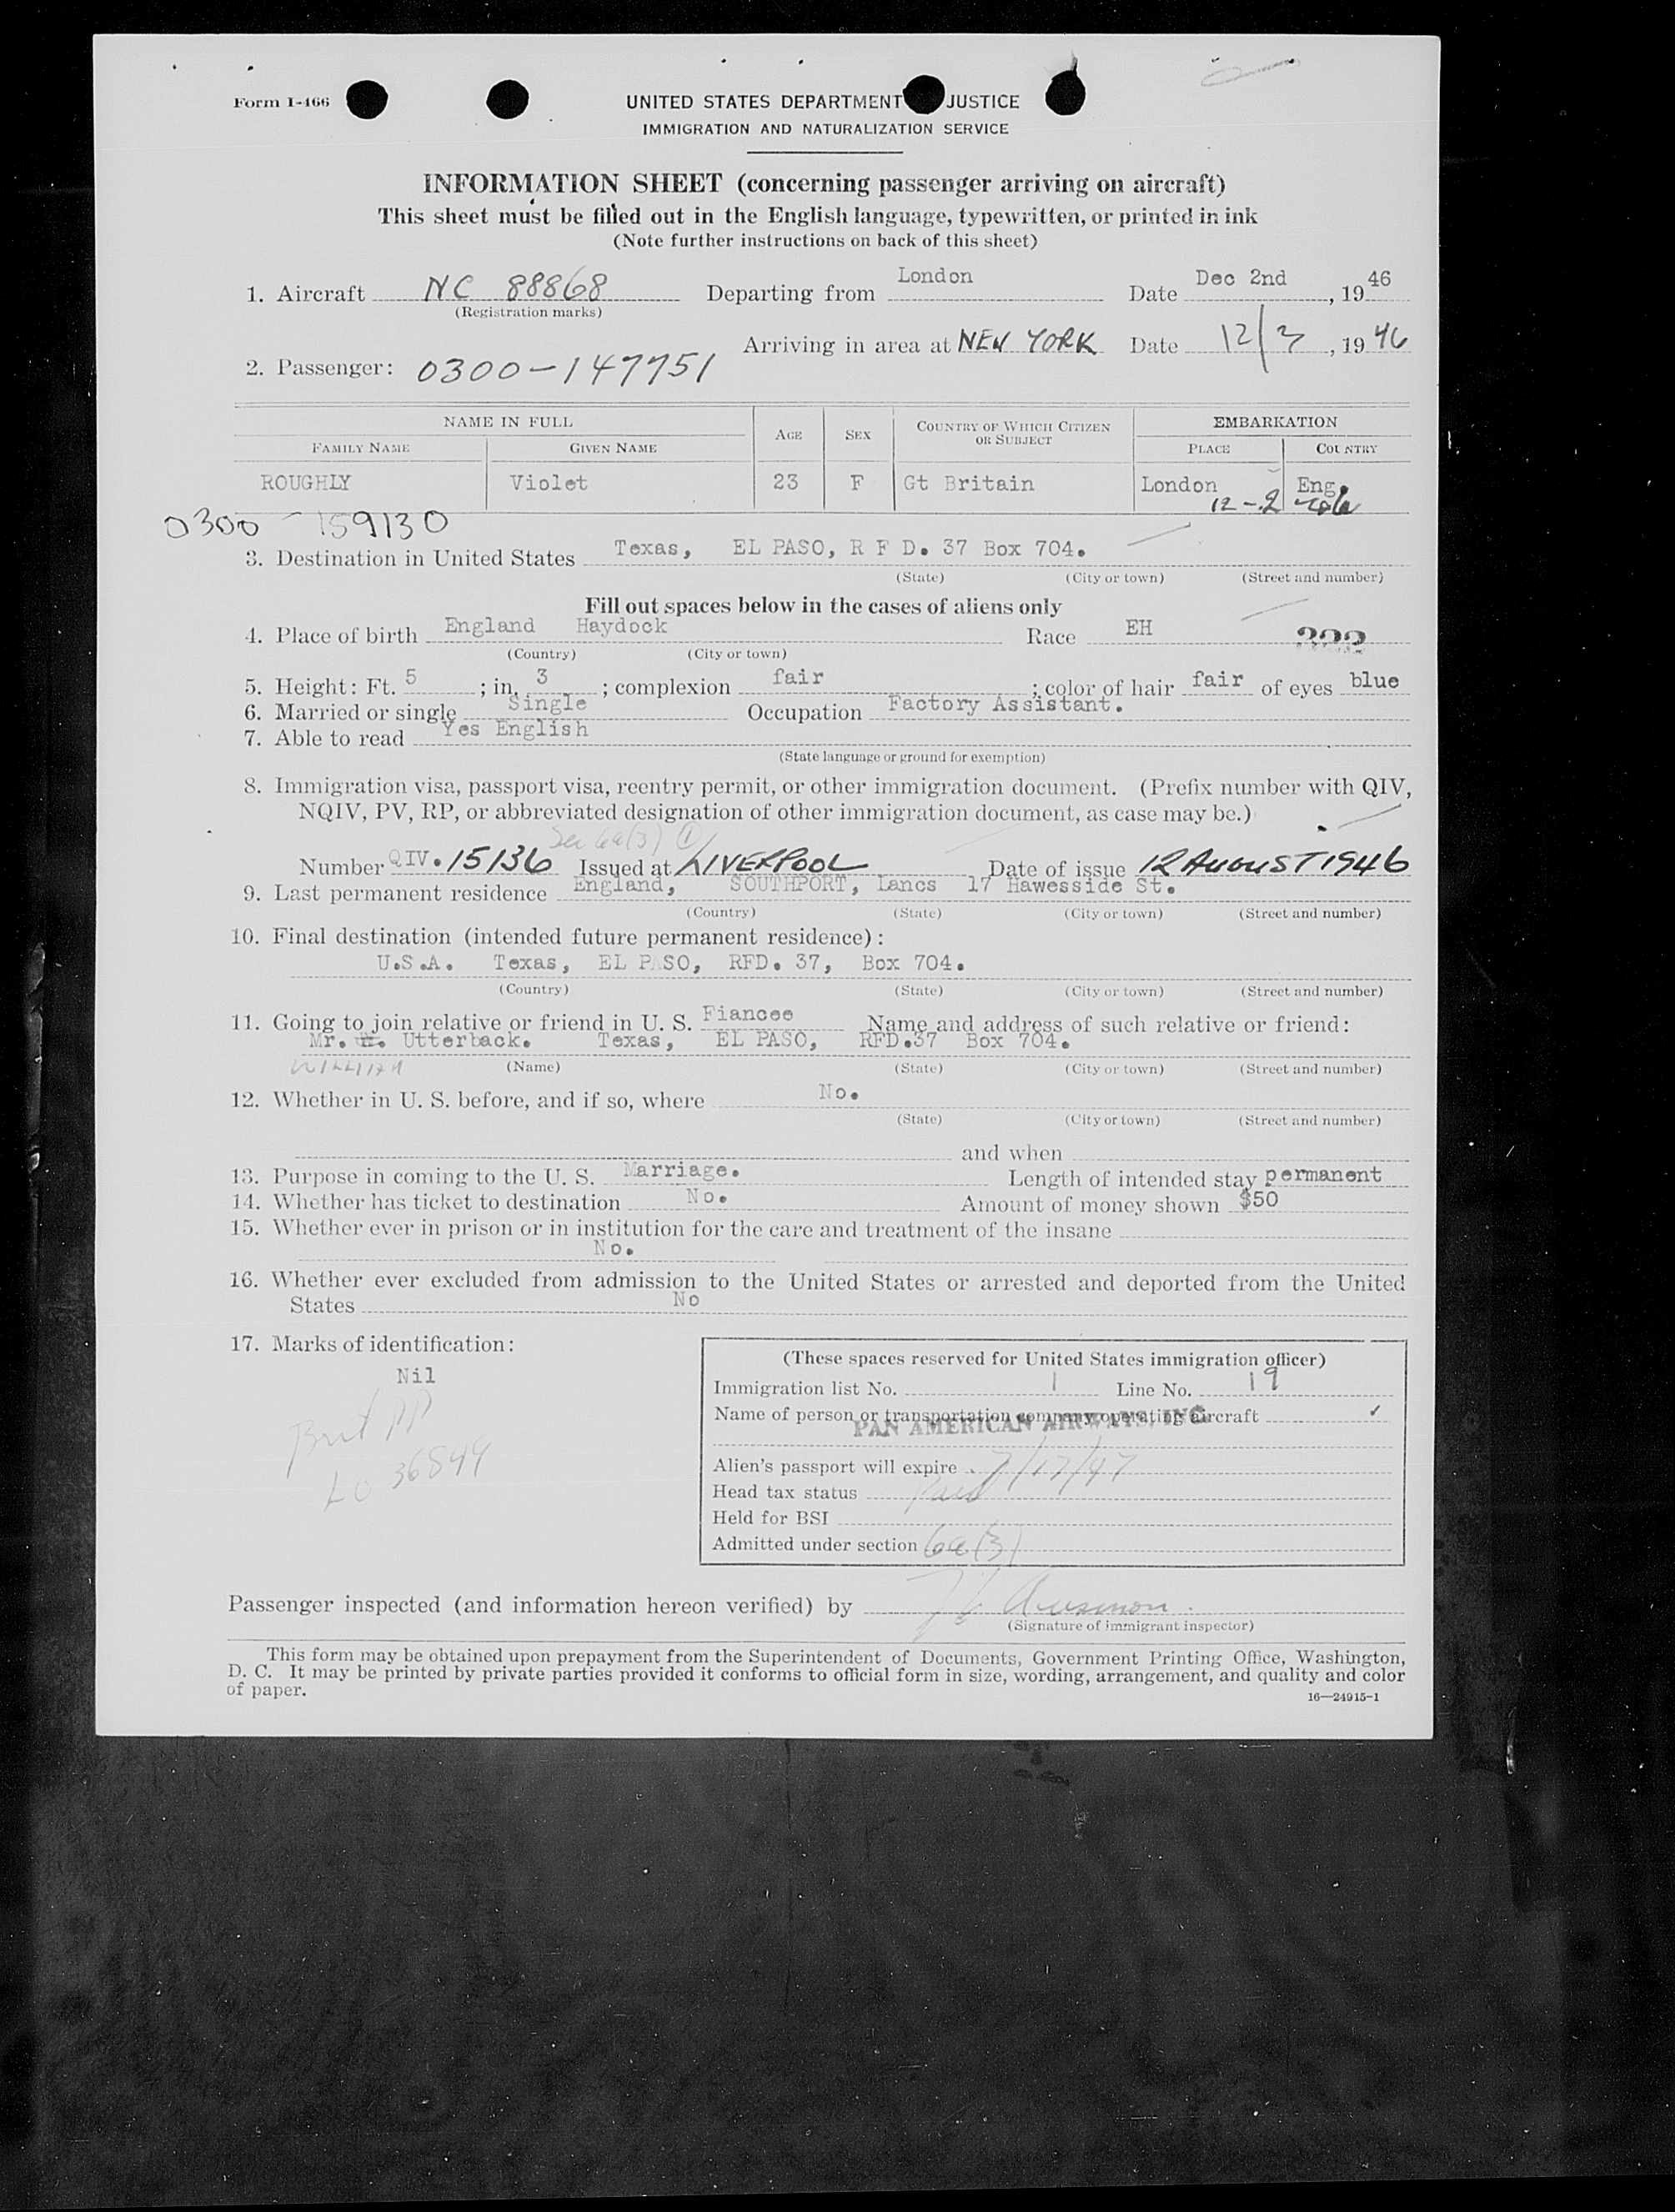 Form I-466
UNITED STATES DEPARTMENT JUSTICE
IMMIGRATION AND NATURALIZATION SERVICE
INFORMATION SHEET (concerning passenger arriving on aircraft)
This sheet must be filled out in the English language, typewritten, or printed in ink
(Note further instructions on back of this sheet)
1. Aircraft NC 88868 Departing from London Date Dec 2nd, 1946
(Registration marks)
Arriving in area at NEW YORK Date 12/3, 1946
2. Passenger: 0300-147751
NAME IN FULL AGE SEX COUNTRY OF WHICH CITIZEN OR SUBJECT EMBARKATION
FAMILY NAME GIVEN NAME PLACE COUNTRY
ROUGHLY Violet 23 F Gt Britain London Eng.
12-2
0300-159130
3. Destination in United States Texas, EL PASO, R F D. 37 Box 704.
(State) (City or town) (Street and number)
Fill out spaces below in the cases of aliens only
4. Place of birth England Haydock Race EH
(Country) (City or town)
5. Height: Ft. 5 ; in. 3 ; complexion fair ; color of hair fair of eyes blue
6. Married or single Single Occupation Factory Assistant.
7. Able to read Yes English
(State language or ground for exemption)
8. Immigration visa, passport visa, reentry permit, or other immigration document. (Prefix number with QIV,
NQIV, PV, RP, or abbreviated designation of other immigration document, as case may be.)
Sec 6a(3)
Number QIV. 15136 Issued at LIVERPOOL Date of issue 12 AUGUST 1946
9. Last permanent residence England, SOUTHPORT, Lancs 17 Hawesside St.
(Country) (State) (City or town) (Street and number)
10. Final destination (intended future permanent residence):
U.S.A. Texas, EL PASO, RFD. 37, Box 704.
(Country) (State) (City or town) (Street and number)
11. Going to join relative or friend in U. S. Fiancee Name and address of such relative or friend:
Mr. Utterback. Texas, EL PASO, RFD.37 Box 704.
WILLIAM (Name) (State) (City or town) (Street and number)
12. Whether in U. S. before, and if so, where No.
(State) (City or town) (Street and number)
and when
13. Purpose in coming to the U. S. Marriage. Length of intended stay permanent
14. Whether has ticket to destination No. Amount of money shown $50
15. Whether ever in prison or in institution for the care and treatment of the insane
No.
16. Whether ever excluded from admission to the United States or arrested and deported from the United
States No
17. Marks of identification:
Nil
Brit PP
LO 36844
(These spaces reserved for United States immigration officer)
Immigration list No. 1 Line No. 19
Name of person or transportation company operating aircraft ✓
PAN AMERICAN AIRWAYS, INC
Alien's passport will expire 7/17/47
Head tax status Paid
Held for BSI
Admitted under section 6a(3)
Passenger inspected (and information hereon verified) by
(Signature of immigrant inspector)
This form may be obtained upon prepayment from the Superintendent of Documents, Government Printing Office, Washington,
D. C. It may be printed by private parties provided it conforms to official form in size, wording, arrangement, and quality and color
of paper.
16—24915-1